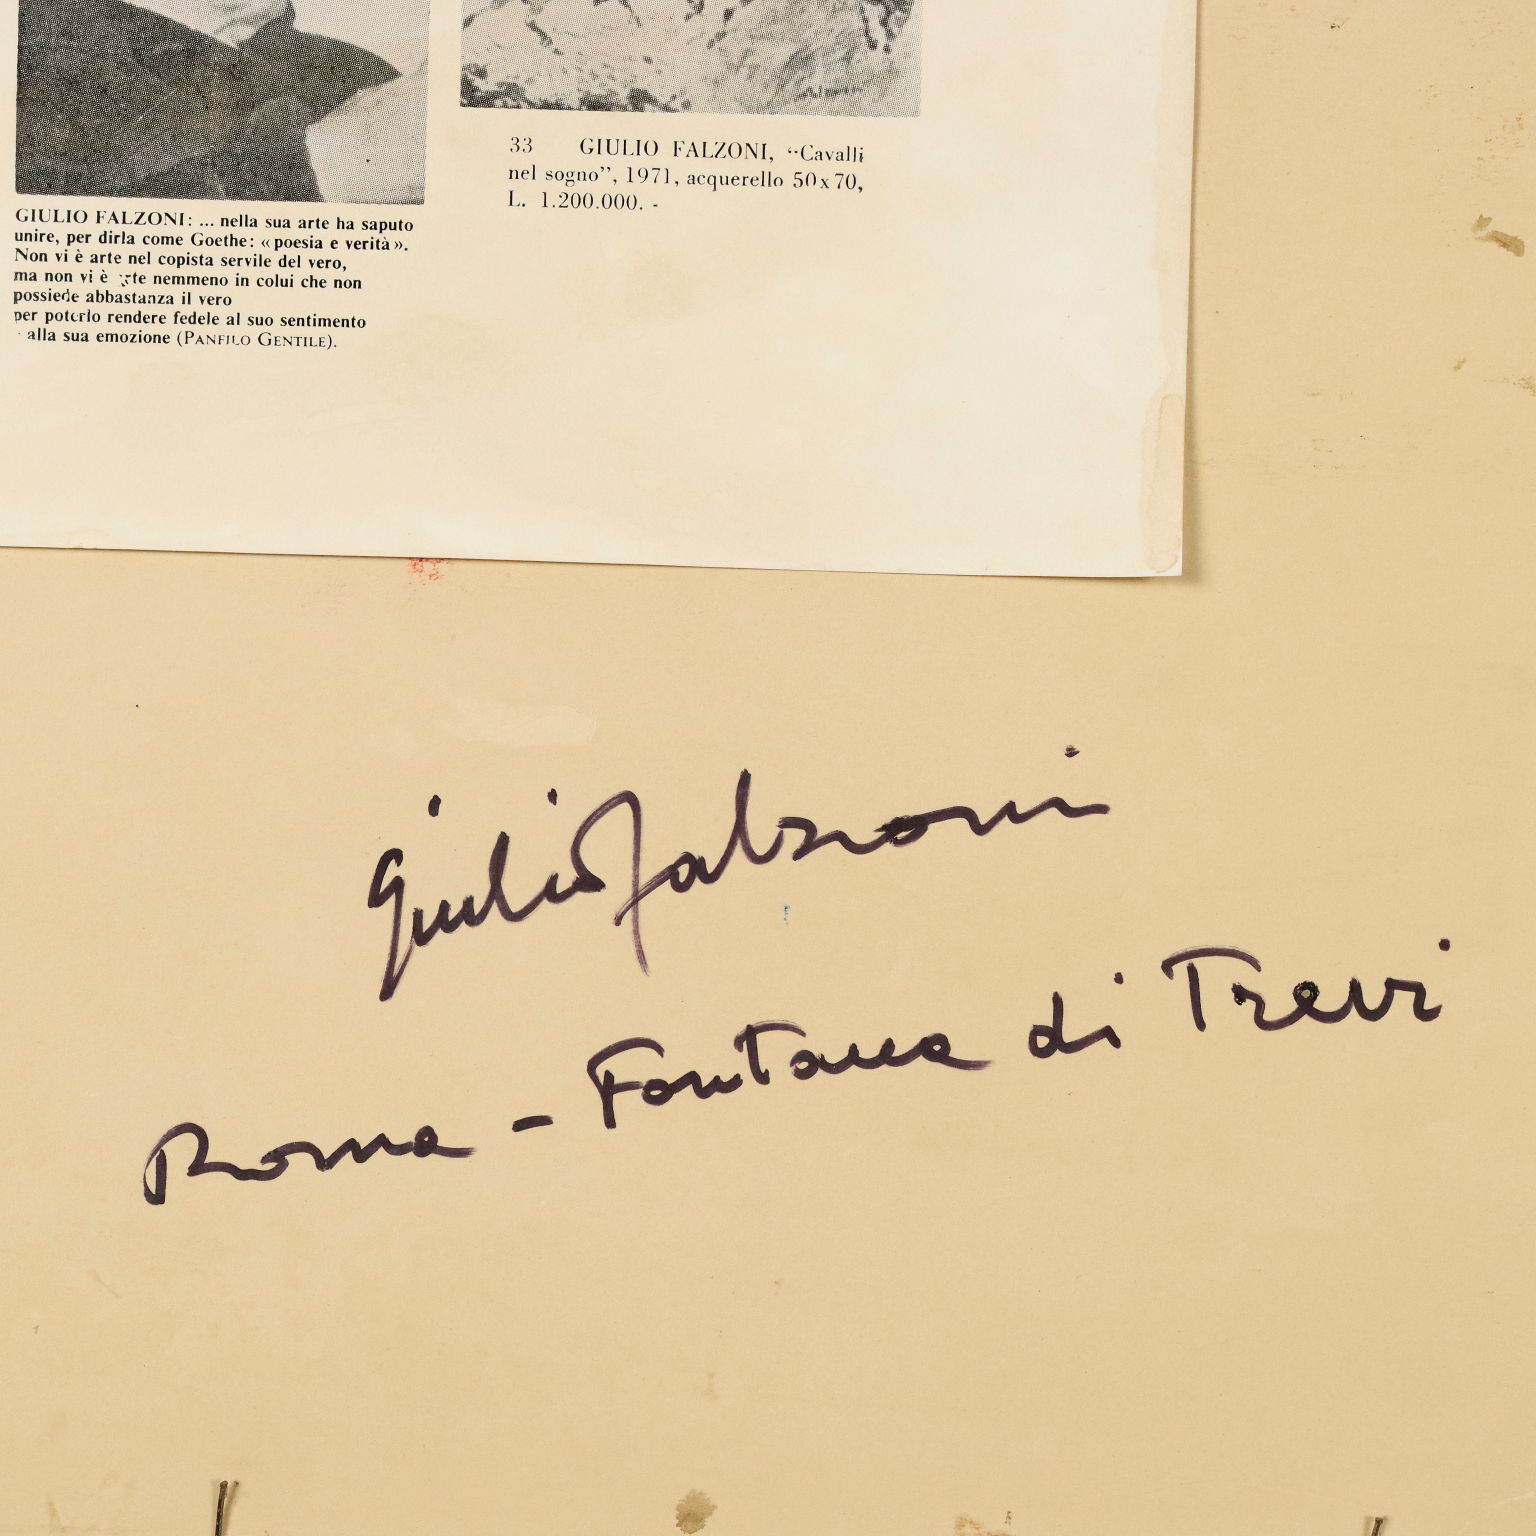 GIULIO FALZONI: ... nella sua arte ha saputo
unire, per dirla come Goethe: «poesia e verità».
Non vi è arte nel copista servile del vero,
ma non vi è arte nemmeno in colui che non
possiede abbastanza il vero
per poterlo rendere fedele al suo sentimento
alla sua emozione (PANFILO GENTILE).
33 GIULIO FALZONI, "Cavalli
nel sogno", 1971, acquerello 50x70,
L. 1.200.000. -
Giulio Falzoni
Roma - Fontana di Trevi